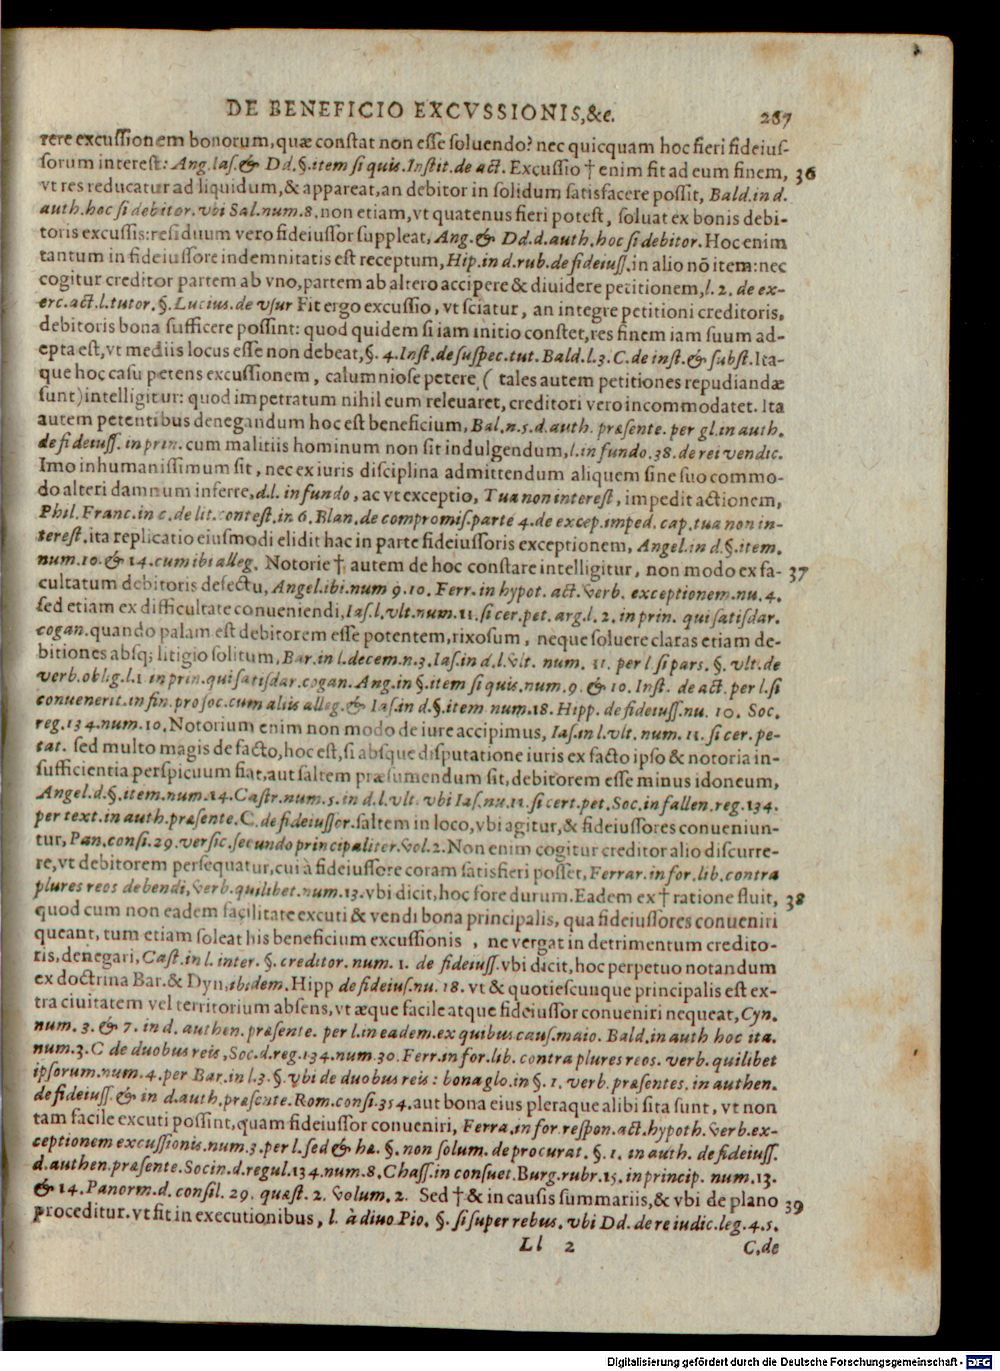 DE BENEFICIO EXCVSSIONIS,&c. 287
rere excussionem bonorum, quæ constat non esse soluendo? nec quicquam hoc fieri fideius-
sorum interest: Ang. Ias. & Dd. §. item si quis. Instit. de act. Excussio † enim fit ad eum finem, 36
vt res reducatur ad liquidum, & appareat, an debitor in solidum satisfacere possit, Bald. in d.
auth. hoc si debitor. vbi Sal. num. 8. non etiam, vt quatenus fieri potest, soluat ex bonis debi-
toris excussis: residuum vero fideiussor suppleat, Ang. & Dd. d. auth. hoc si debitor. Hoc enim
tantum in fideiussore indemnitatis est receptum, Hip. in d. rub. de fideiuss. in alio nō item: nec
cogitur creditor partem ab vno, partem ab altero accipere & diuidere petitionem, l. 2. de ex-
erc. act. l. tutor. §. Lucius. de vsur Fit ergo excussio, vt sciatur, an integre petitioni creditoris,
debitoris bona sufficere possint: quod quidem si iam initio constet, res finem iam suum ad-
epta est, vt mediis locus esse non debeat, §. 4. Inst. de suspec. tut. Bald. l. 3. C. de inst. & subst. Ita-
que hoc casu petens excussionem, calumniose petere ( tales autem petitiones repudiandæ
sunt) intelligitur: quod impetratum nihil eum releuaret, creditori vero incommodatet. Ita
autem petentibus denegandum hoc est beneficium, Bal. n. 5. d. auth. præsente. per gl. in auth.
de fideiuss. in prin. cum malitiis hominum non sit indulgendum, l. in fundo. 38. de rei vendic.
Imo inhumanissimum sit, nec ex iuris disciplina admittendum aliquem sine suo commo-
do alteri damnum inferre, d. l. in fundo, ac vt exceptio, Tua non interest, impedit actionem,
Phil. Franc. in c. de lit. contest. in 6. Blan. de compromis. parte 4. de excep. imped. cap. tua non in-
terest. ita replicatio eiusmodi elidit hac in parte fideiussoris exceptionem, Angel. in d. §. item.
num. 10. & 14. cum ibi alleg. Notorie † autem de hoc constare intelligitur, non modo ex fa- 37
cultatum debitoris defectu, Angel. ibi. num 9. 10. Ferr. in hypot. act. verb. exceptionem. nu. 4.
sed etiam ex difficultate conueniendi, Ias. l. vlt. num. 11. si cer. pet. arg. l. 2. in prin. qui satisdar.
cogan. quando palam est debitorem esse potentem, rixosum, neque soluere claras etiam de-
bitiones absq; litigio solitum, Bar. in l. decem. n. 3. Ias. in d. l. vlt. num. 11. per l. si pars. §. vlt. de
verb. oblig. l. 1 in prin. qui satisdar. cogan. Ang. in §. item si quis. num. 9. & 10. Inst. de act. per l. si
conuenerit. in fin. pro soc. cum aliis alleg. & Ias. in d. §. item num. 18. Hipp. de fideiuss. nu. 10. Soc.
reg. 134. num. 10. Notorium enim non modo de iure accipimus, Ias. in l. vlt. num. 11. si cer. pe-
tat. sed multo magis de facto, hoc est, si absque disputatione iuris ex facto ipso & notoria in-
sufficientia perspicuum fiat, aut saltem præsumendum sit, debitorem esse minus idoneum,
Angel. d. §. item. num. 14. Castr. num. 5. in d. l. vlt. vbi Ias. nu. 11. si cert. pet. Soc. in fallen. reg. 134.
per text. in auth. præsente. C. de fideiussor. saltem in loco, vbi agitur, & fideiussores conueniun-
tur, Pan. consi. 29. versic. secundo principaliter. vol. 2. Non enim cogitur creditor alio discurre-
re, vt debitorem persequatur, cui à fideiussore coram satisfieri posset, Ferrar. in for. lib. contra
plures reos debendi, verb. quilibet. num. 13. vbi dicit, hoc fore durum. Eadem ex † ratione fluit, 38
quod cum non eadem facilitate excuti & vendi bona principalis, qua fideiussores conueniri
queant, tum etiam soleat his beneficium excussionis , ne vergat in detrimentum credito-
ris, denegari, Cast. in l. inter. §. creditor. num. 1. de fideiuss. vbi dicit, hoc perpetuo notandum
ex doctrina Bar. & Dyn. ibidem. Hipp de fideius. nu. 18. vt & quotiescunque principalis est ex-
tra ciuitatem vel territorium absens, vt æque facile atque fideiussor conueniri nequeat, Cyn.
num. 3. & 7. in d. authen. præsente. per l. in eadem. ex quibus caus. maio. Bald. in auth hoc ita.
num. 3. C de duobus reis, Soc. d. reg. 134. num. 30. Ferr. in for. lib. contra plures reos. verb. quilibet
ipsorum. num. 4. per Bar. in l. 3. §. vbi de duobus reis: bona glo. in §. 1. verb. præsentes. in authen.
de fideiuss. & in d. auth. præsente. Rom. consi. 354. aut bona eius pleraque alibi sita sunt, vt non
tam facile excuti possint, quam fideiussor conueniri, Ferra. in for. respon. act. hypoth. verb. ex-
ceptionem excussionis. num. 3. per l. sed & hæ. §. non solum. de procurat. §. 1. in auth. de fideiuss.
d. authen. præsente. Socin. d. regul. 134. num. 8. Chass. in consuet. Burg. rubr. 15. in princip. num. 13.
& 14. Panorm. d. consil. 29. quæst. 2. volum. 2. Sed † & in causis summariis, & vbi de plano 39
proceditur. vt fit in executionibus, l. à diuo Pio. §. si super rebus. vbi Dd. de re iudic. leg. 4. 5.
Ll 2 C. de
Digitalisierung gefördert durch die Deutsche Forschungsgemeinschaft - DFG